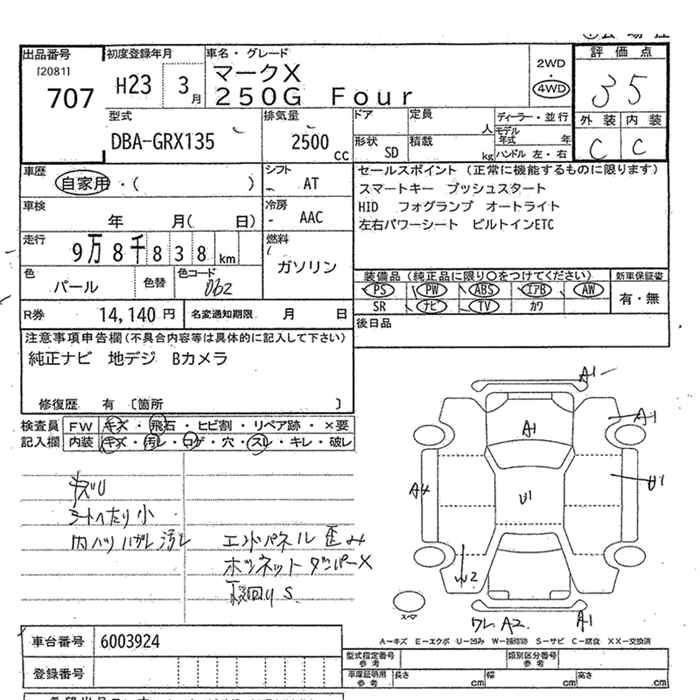 出品番号 初度登録年月 車名・グレード 評価点
(2081)
707 H23 3月 マークX 2WD 35
250G Four 4WD
型式 排気量 ドア 定員 人 ディーラー・並行 外装 内装
DBA-GRX135 2500cc 形状 SD 積載 kg モデル年式 年 ハンドル 左・右 C C
車歴 シフト セールスポイント (正常に機能するものに限ります)
自家用・( ) AT スマートキー プッシュスタート
車検 冷房 HID フォグランプ オートライト
年 月( 日) AAC 左右パワーシート ビルトインETC
走行 燃料
9万8千838km ガソリン
色 色替 色コード 装備品 (純正品に限り〇をつけてください) 新車保証書
パール 062 PS PW ABS エアB AW 有・無
SR ナビ TV カワ
R券 14,140円 名変通知期限 月 日 後日品
注意事項申告欄 (不具合内容等は具体的に記入して下さい)
純正ナビ 地デジ Bカメラ
修復歴 有 〔箇所 〕
検査員 FW キズ・飛石・ヒビ割・リペア跡・×要
記入欄 内装 キズ・汚レ・コゲ・穴・スレ・キレ・破レ
A1
A1
A1
キズU A4 U1 U1
シートヘたり小
内ハリハガレ汚レ エンドパネル歪み
ボンネットダンパーX W2
下回りS
スペア
ワレ A2 A1
A-キズ E-エクボ U-凹み W-補修跡 S-サビ C-腐食 XX-交換済
車台番号 6003924 型式指定番号 参考 類別区分番号 参考
登録番号 車庫証明用 参考 長さ cm 幅 cm 高さ cm